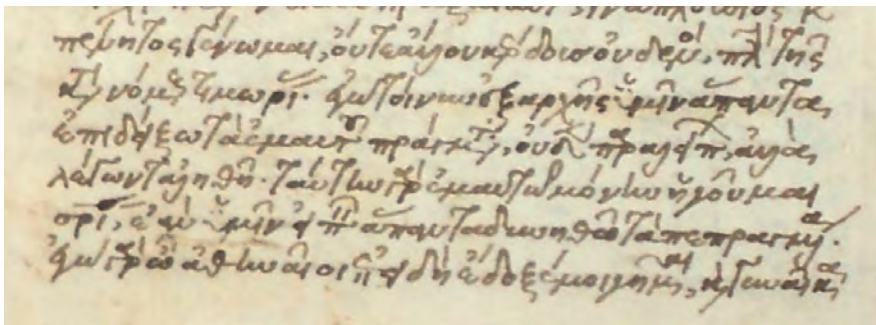 πένητος γένωμαι, οὔτε ἄλλου κέρδους οὐδενὸς, πλὴν τῆς
κατὰ νόμους τιμωρίας. ἐγὼ τοίνυν ἐξαρχῆς ὑμῖν ἅπαντα
ἐπιδείξω τὰ ἐμαυτοῦ πράγματα, οὐδὲν παραλείπων, ἀλλὰ
λέγων τἀληθῆ. ταύτην γὰρ ἐμαυτῷ μόνην ἡγοῦμαι
σωτηρίαν, ἐὰν ὑμῖν εἰπεῖν ἅπαντα δυνηθῶ τὰ πεπραγμένα.
ἐγὼ γὰρ ὦ ἀθηναῖοι ἐπειδὴ ἔδοξέ μοι γῆμαι, καὶ γυναῖκα